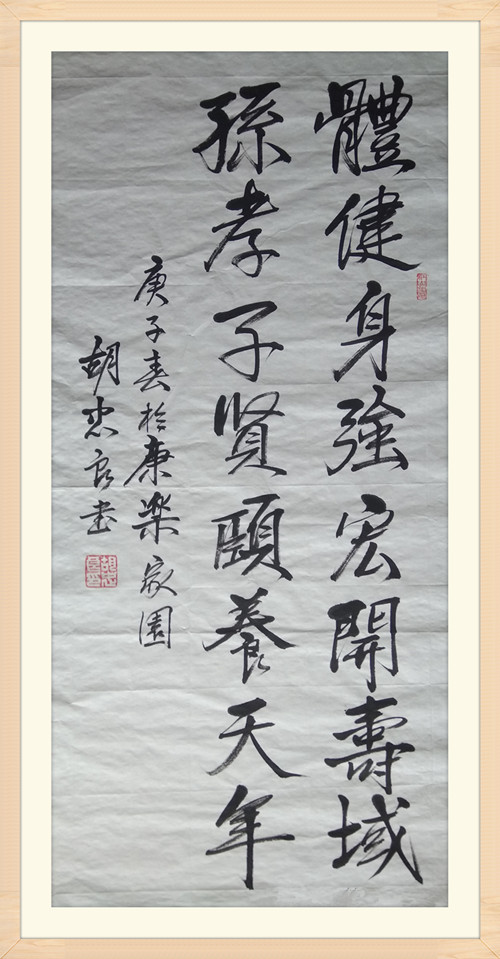 體健身強宏開壽域
孫孝子賢頤養天年
庚子春於康樂家園
胡忠良书